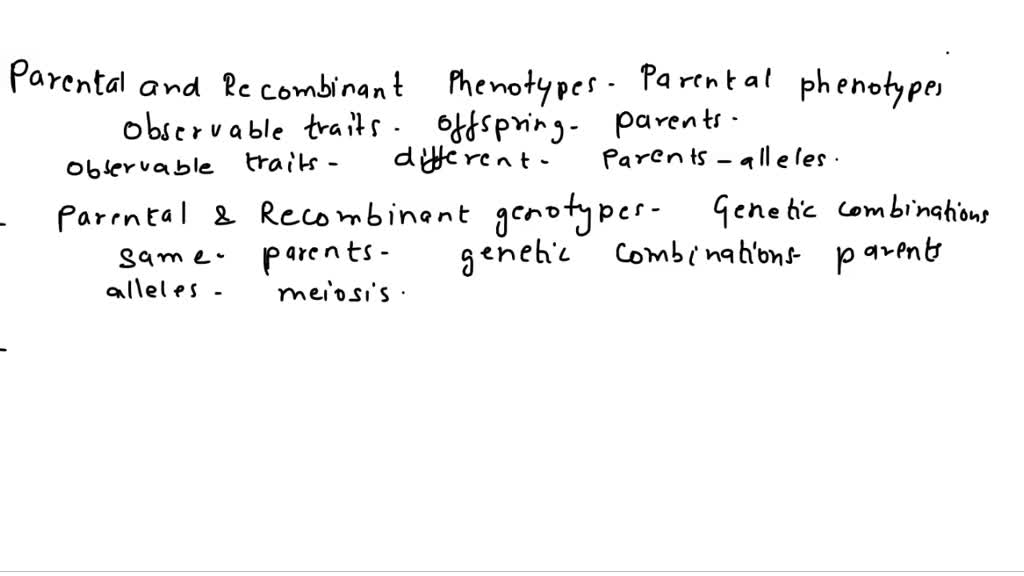 Parental and Recombinant Phenotypes - Parental phenotypes
observable traits - offspring - parents.
observable traits - different - Parents - alleles.
- Parental & Recombinant genotypes - Genetic combinations
same - parents - genetic combinations - parents
alleles - meiosis.
-